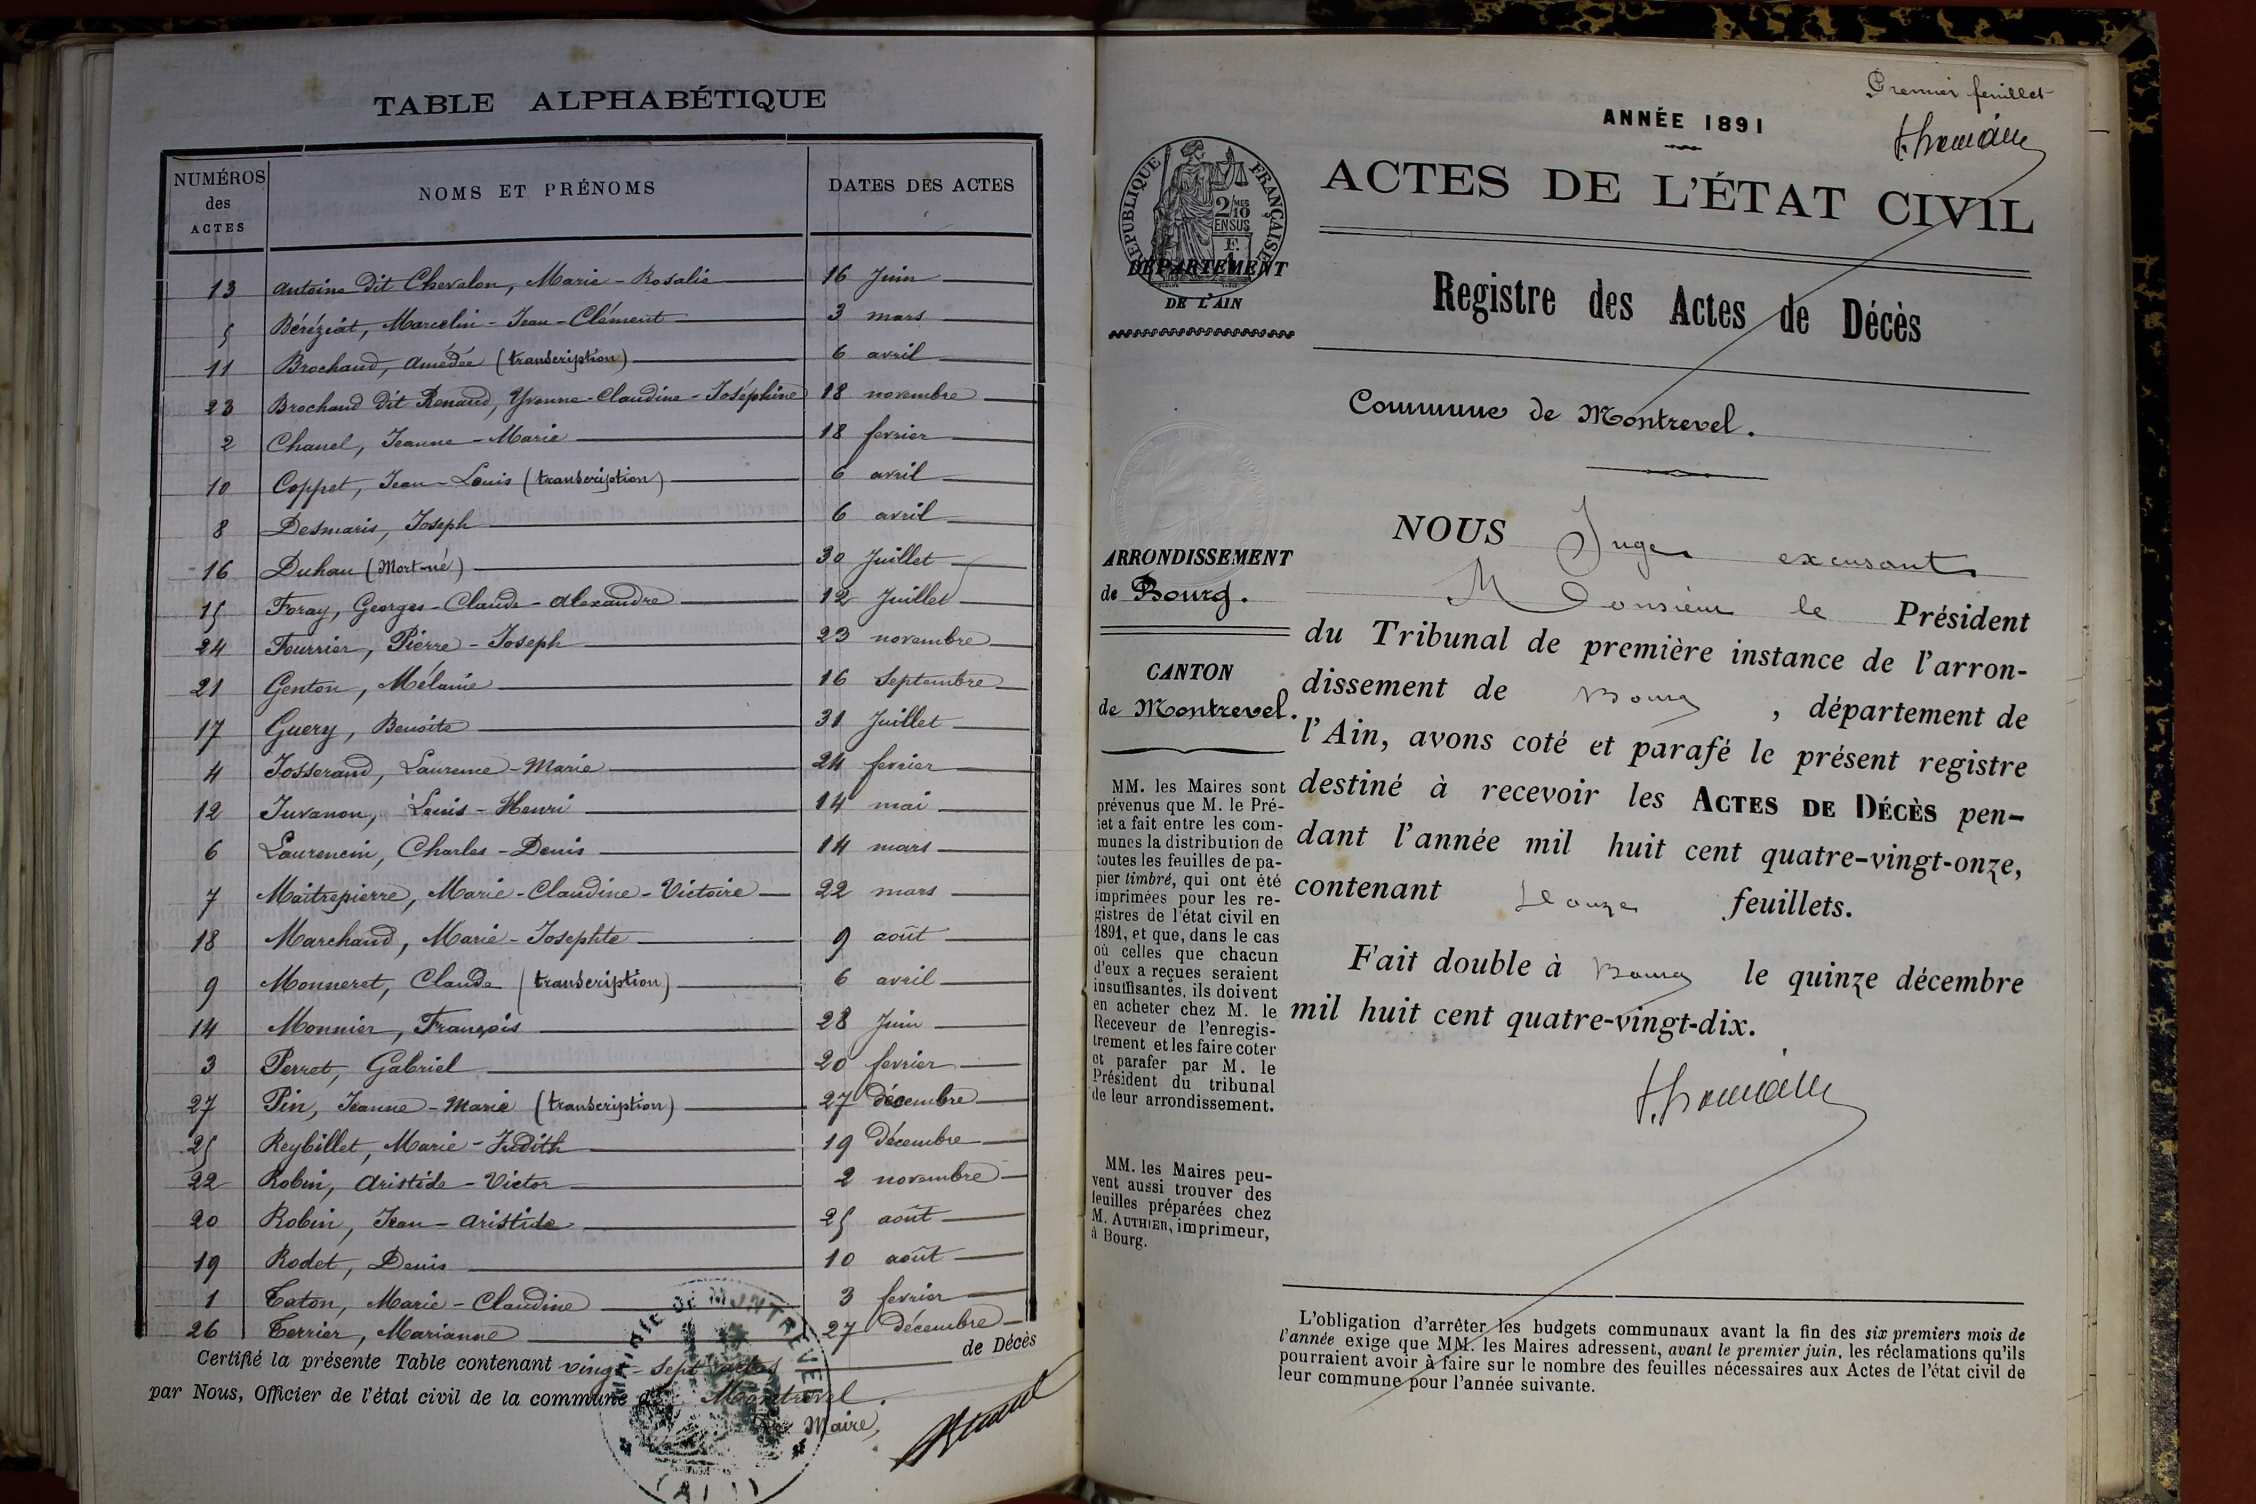 TABLE ALPHABÉTIQUE
NUMÉROS des ACTES NOMS ET PRÉNOMS DATES DES ACTES
13 Antoine dit Chevalon, Marie-Rosalie 16 Juin
5 Béréziat, Marcelin-Jean-Clément 3 mars
11 Brochand, Amédée (transcription) 6 avril
23 Brochand dit Renaud, Yvonne-Claudine-Joséphine 18 novembre
2 Chanel, Jeanne-Marie 18 fevrier
10 Coppet, Jean-Louis (transcription) 6 avril
8 Desmaris, Joseph 6 avril
16 Duhau (Mort-né) 30 Juillet
15 Foray, Georges-Claude-Alexandre 12 Juillet
24 Fourrier, Pierre-Joseph 23 novembre
21 Genton, Mélanie 16 Septembre
17 Guery, Benoite 31 Juillet
4 Josserand, Laurence-Marie 24 fevrier
12 Juvanon, Louis-Henri 14 mai
6 Laurencin, Charles-Denis 14 mars
7 Maitrepierre, Marie-Claudine-Victoire 22 mars
18 Marchand, Marie-Josephte 9 août
9 Monneret, Claude (transcription) 6 avril
14 Monnier, François 28 Juin
3 Perret, Gabriel 20 fevrier
27 Pin, Jeanne-Marie (transcription) 27 décembre
25 Reybillet, Marie-Judith 19 décembre
22 Robin, Aristide-Victor 2 novembre
20 Robin, Jean-Aristide 25 août
19 Rodet, Denis 10 août
1 Taton, Marie-Claudine 3 fevrier
26 Terrier, Marianne 27 décembre
Certifié la présente Table contenant vingt-sept actes de Décès
par Nous, Officier de l'état civil de la commune de Montrevel.
Le Maire,
MAIRIE DE MONTREVEL
(AIN)
Premier feuillet
ANNÉE 1891
RÉPUBLIQUE FRANÇAISE
2/10 MES
EN SUS
DÉPARTEMENT
DE L'AIN
ACTES DE L'ÉTAT CIVIL
Registre des Actes de Décès
Commune de Montrevel.
ARRONDISSEMENT
de Bourg.
CANTON
de Montrevel.
MM. les Maires sont
prévenus que M. le Pré-
fet a fait entre les com-
munes la distribution de
toutes les feuilles de pa-
pier timbré, qui ont été
imprimées pour les re-
gistres de l'état civil en
1891, et que, dans le cas
où celles que chacun
d'eux a reçues seraient
insuffisantes, ils doivent
en acheter chez M. le
Receveur de l'enregis-
trement et les faire coter
et parafer par M. le
Président du tribunal
de leur arrondissement.
MM. les Maires peu-
vent aussi trouver des
feuilles préparées chez
M. AUTHIER, imprimeur,
à Bourg.
NOUS Juge excusant
Monsieur le Président
du Tribunal de première instance de l'arron-
dissement de Bourg, département de
l'Ain, avons coté et parafé le présent registre
destiné à recevoir les ACTES DE DÉCÈS pen-
dant l'année mil huit cent quatre-vingt-onze,
contenant douze feuillets.
Fait double à Bourg le quinze décembre
mil huit cent quatre-vingt-dix.
L'obligation d'arrêter les budgets communaux avant la fin des six premiers mois de
l'année exige que MM. les Maires adressent, avant le premier juin, les réclamations qu'ils
pourraient avoir à faire sur le nombre des feuilles nécessaires aux Actes de l'état civil de
leur commune pour l'année suivante.